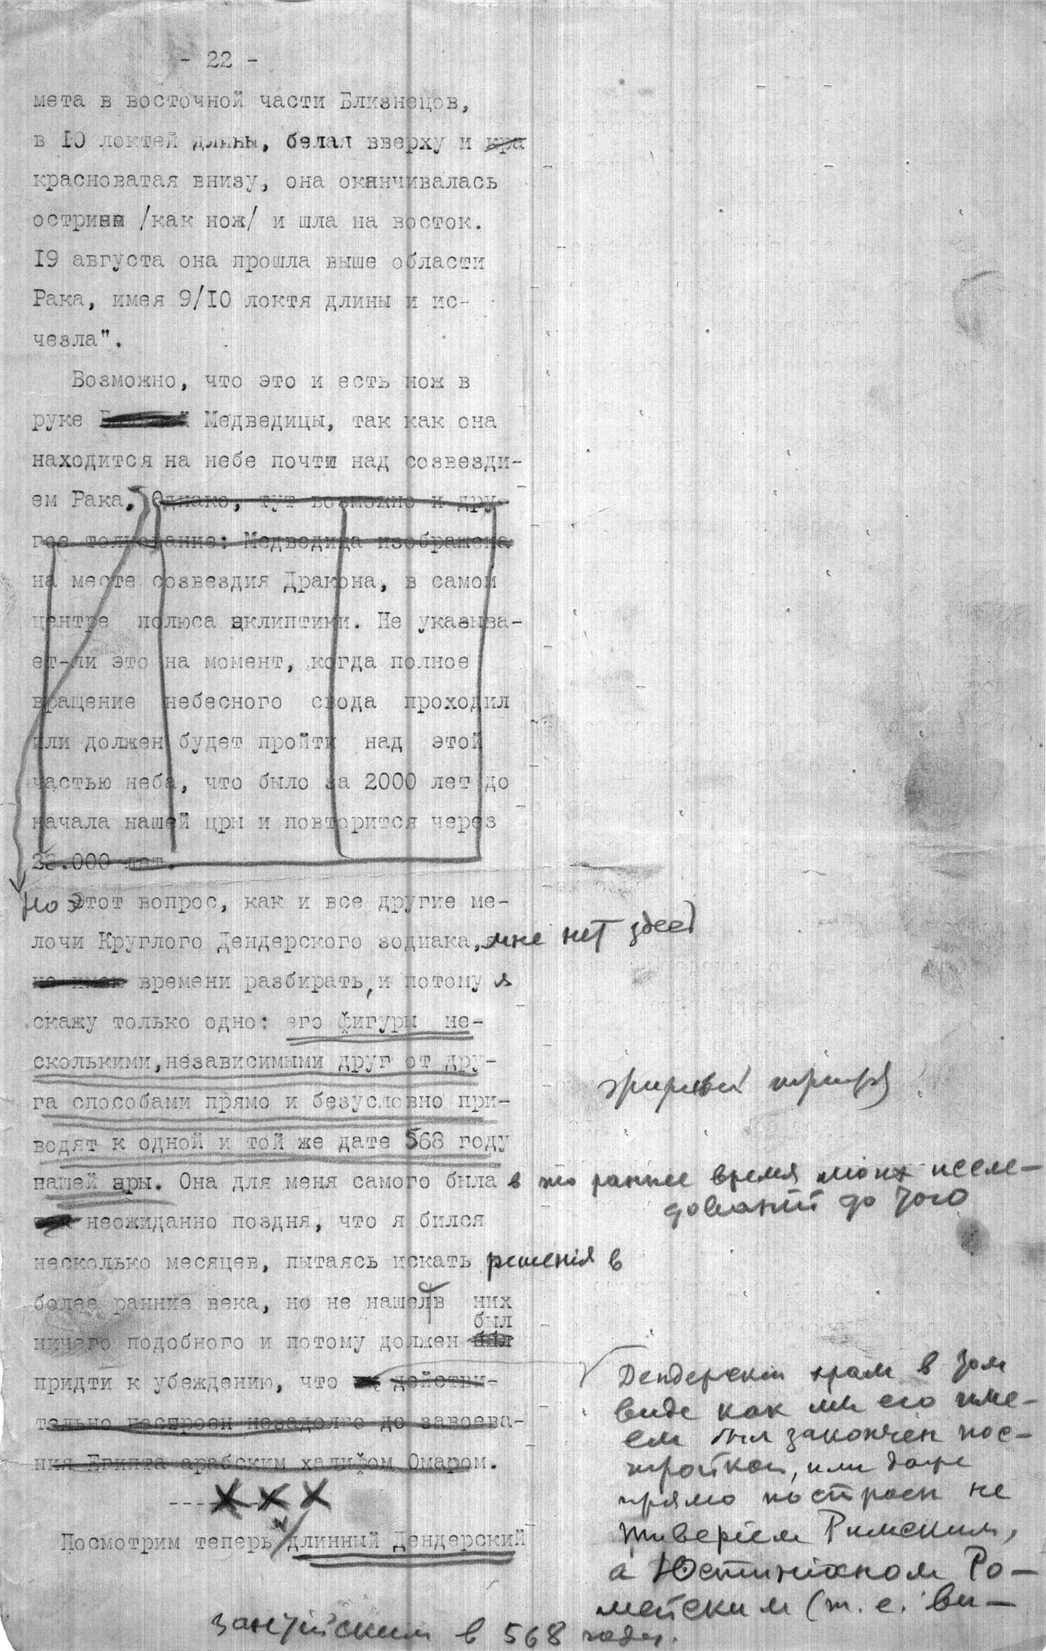 - 22 -
мета в восточной части Близнецов,
в 10 локтей длины, белая вверху и кра
красноватая внизу, она оканчивалась
острием /как нож/ и шла на восток.
19 августа она прошла выше области
Рака, имея 9/10 локтя длины и ис-
чезла".
Возможно, что это и есть нож в
руке Медведицы, так как она
находится на небе почти над созвезди-
ем Рака. Однако, тут возможно и дру-
гое толкование: Медведица изображена
на месте созвездия Дракона, в самом
центре полюса эклиптики. Не указыва-
ет-ли это на момент, когда полное
вращение небесного свода проходил
или должен будет пройти над этой
частью неба, что было за 2000 лет до
начала нашей эры и повторится через
23.000 лет.
Но этот вопрос, как и все другие ме-
лочи Круглого Дендерского зодиака, мне нет здесь
не имею времени разбирать, и потому я
скажу только одно: его фигуры не-
сколькими, независимыми друг от дру-
га способами прямо и безусловно при-
водят к одной и той же дате 568 году
жирный шрифт
нашей эры. Она для меня самого была в то раннее время моих иссле-
дований до того
неожиданно поздня, что я бился
несколько месяцев, пытаясь искать решения в
более ранние века, но не нашел в них
ничего подобного и потому должен был
придти к убеждению, что действи-
тельно построен незадолго до завоева-
ния Египта арабским халифом Омаром.
Дендерский храм в том
виде как мы его име-
ем был закончен пос-
тройкой, или даже
прямо построен не
Тиверием Римским,
а Юстинианом Ро-
мейским (т. е. ви-
зантийским в 568 году.
Посмотрим теперь длинный Дендерский